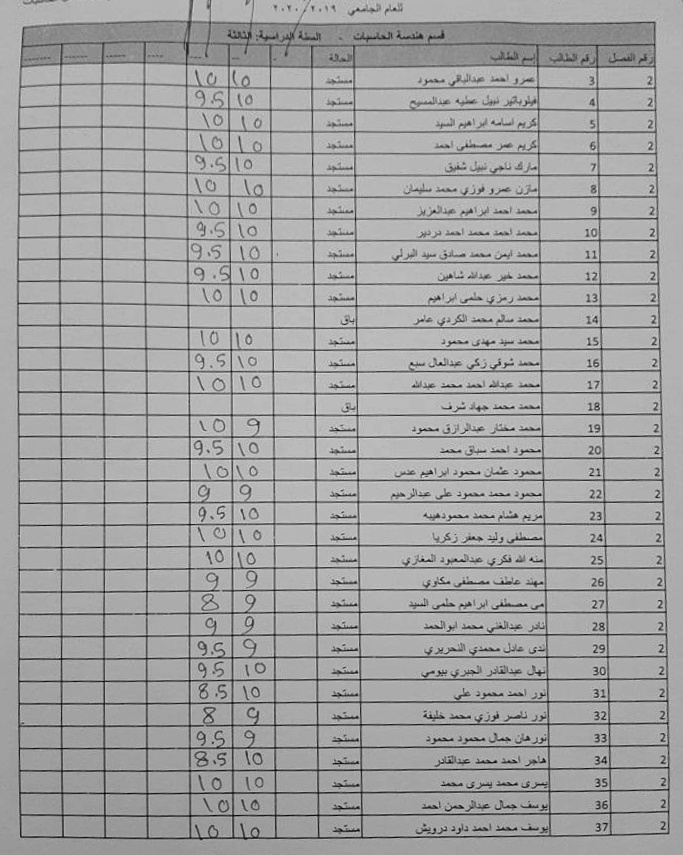 للعام الجامعي ٢٠١٩ / ٢٠٢٠
قسم هندسة الحاسبات - السنة الدراسية: الثالثة
رقم الفصل رقم الطالب إسم الطالب الحالة
2 3 عمرو احمد عبدالباقي محمود مستجد 10 10
2 4 فيلوباتير نبيل عطيه عبدالمسيح مستجد 10 9.5
2 5 كريم اسامه ابراهيم السيد مستجد 10 10
2 6 كريم عمر مصطفى احمد مستجد 10 10
2 7 مارك ناجي نبيل شفيق مستجد 10 9.5
2 8 مازن عمرو فوزي محمد سليمان مستجد 10 10
2 9 محمد احمد ابراهيم عبدالعزيز مستجد 10 10
2 10 محمد احمد محمد احمد دردير مستجد 10 9.5
2 11 محمد ايمن محمد صادق سيد البرلي مستجد 10 9.5
2 12 محمد خير عبدالله شاهين مستجد 10 9.5
2 13 محمد رمزي حلمى ابراهيم مستجد 10 10
2 14 محمد سالم محمد الكردي عامر باق
2 15 محمد سيد مهدى محمود مستجد 10 10
2 16 محمد شوقي زكي عبدالعال سبع مستجد 10 9.5
2 17 محمد عبدالله احمد محمد عبدالله مستجد 10 10
2 18 محمد محمد جهاد شرف باق
2 19 محمد مختار عبدالرازق محمود مستجد 9 10
2 20 محمود احمد سباق محمد مستجد 10 9.5
2 21 محمود عثمان محمود ابراهيم عدس مستجد 10 10
2 22 محمود محمد محمود على عبدالرحيم مستجد 9 9
2 23 مريم هشام محمد محمودهيبه مستجد 10 9.5
2 24 مصطفى وليد جعفر زكريا مستجد 10 10
2 25 منه الله فكري عبدالمعبود المغازي مستجد 10 10
2 26 مهند عاطف مصطفى مكاوي مستجد 9 9
2 27 مى مصطفى ابراهيم حلمى السيد مستجد 9 8
2 28 نادر عبدالغني محمد ابوالحمد مستجد 9 9
2 29 ندى عادل محمدي النحريري مستجد 9 9.5
2 30 نهال عبدالقادر الجبري بيومي مستجد 10 9.5
2 31 نور احمد محمود علي مستجد 10 8.5
2 32 نور ناصر فوزي محمد خليفة مستجد 9 8
2 33 نورهان جمال محمود محمود مستجد 9 9.5
2 34 هاجر احمد محمد عبدالقادر مستجد 10 8.5
2 35 يسرى محمد يسرى محمد مستجد 10 10
2 36 يوسف جمال عبدالرحمن احمد مستجد 10 10
2 37 يوسف محمد احمد داود درويش مستجد 10 10